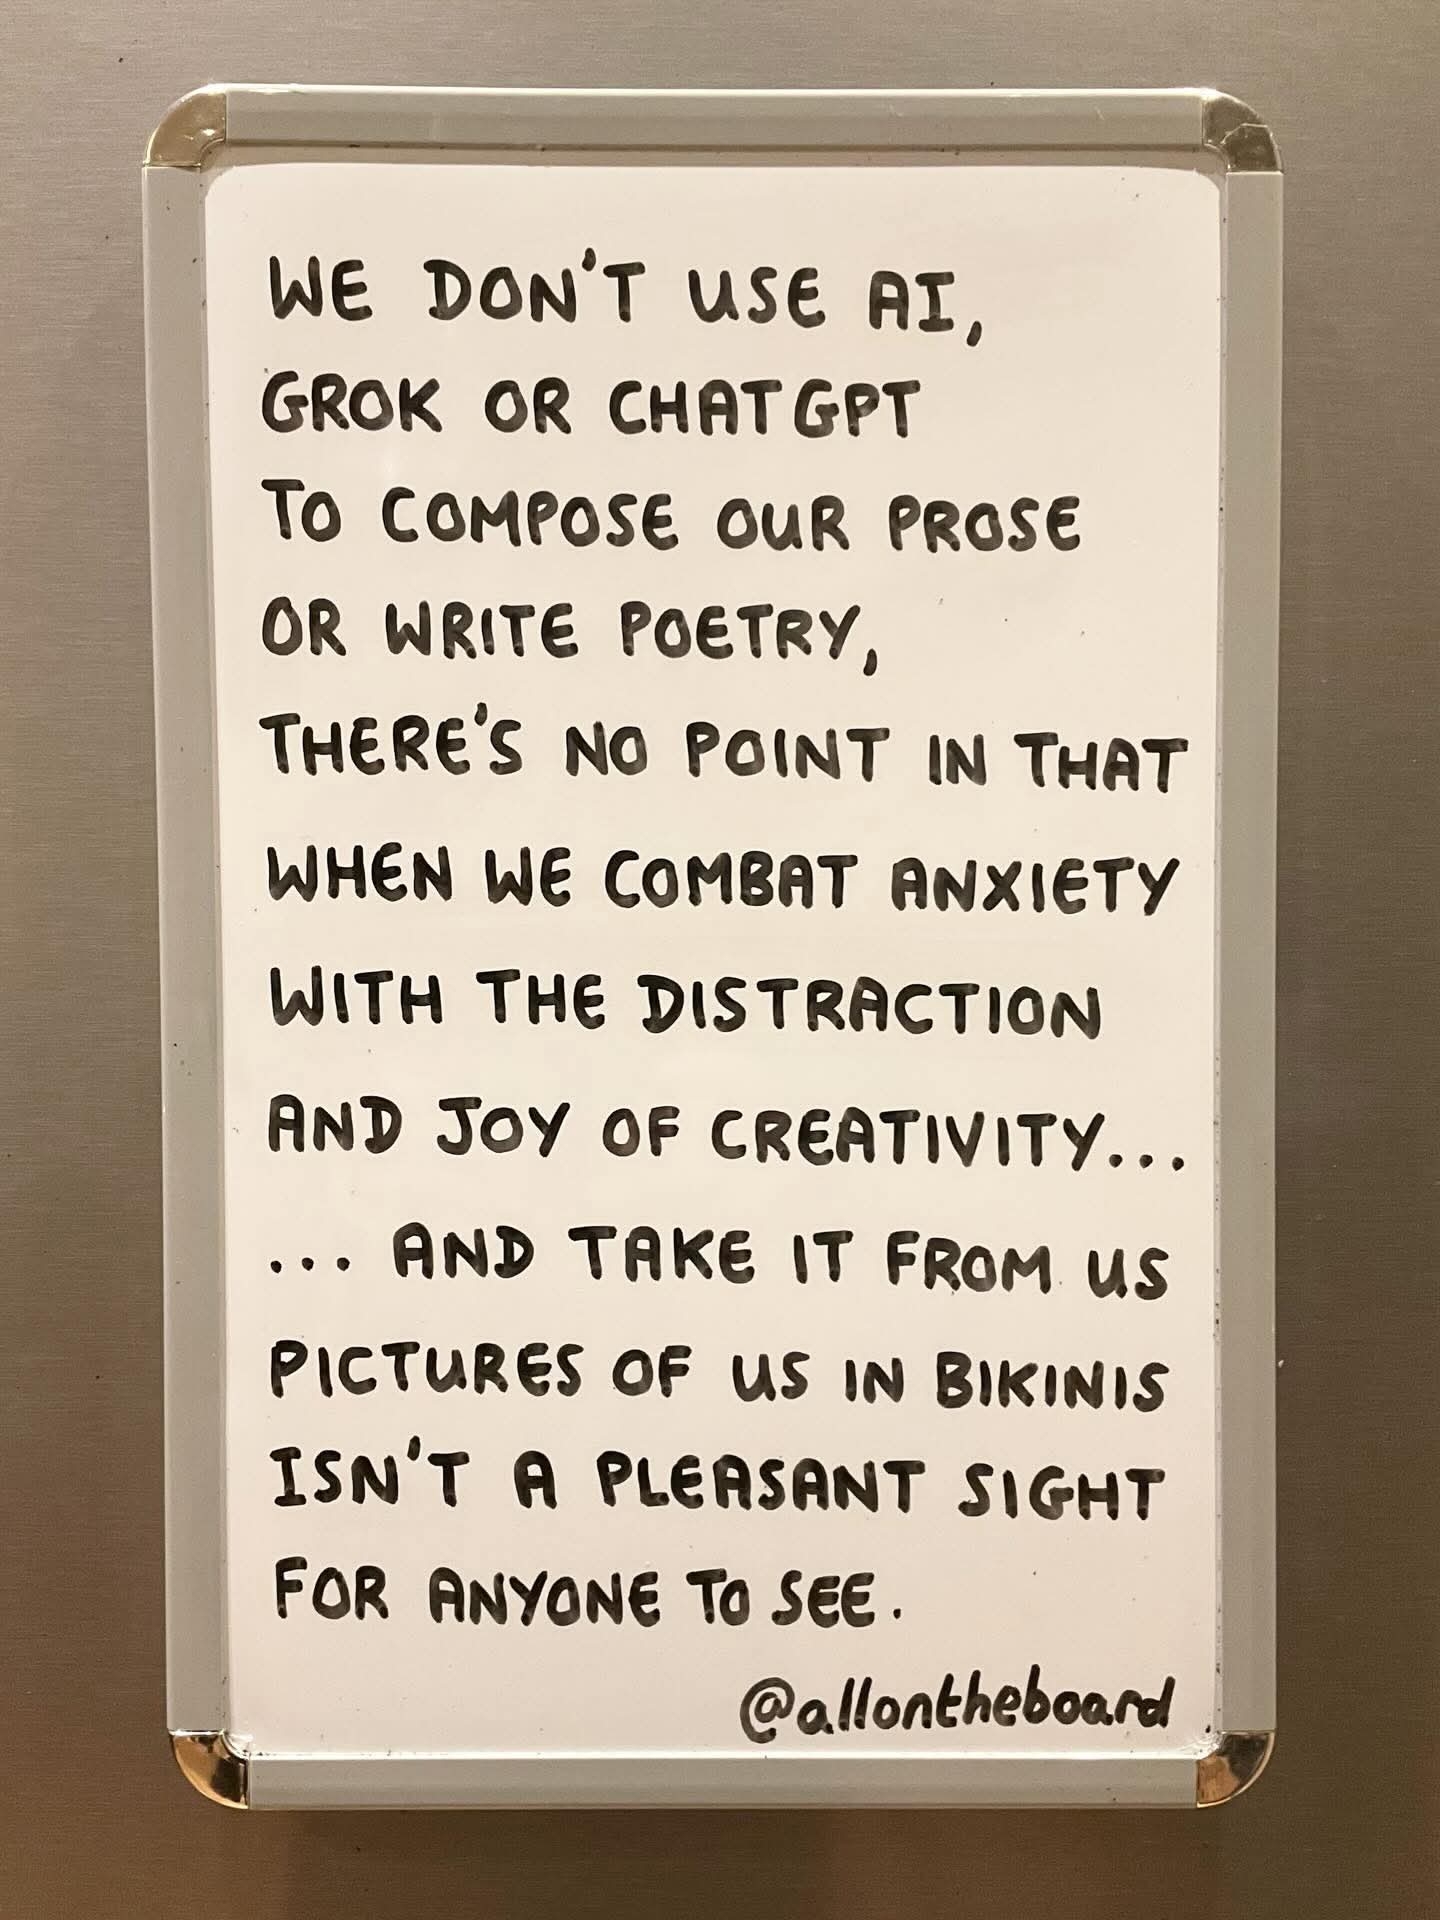 WE DON'T USE AI,
GROK OR CHATGPT
TO COMPOSE OUR PROSE
OR WRITE POETRY,
THERE'S NO POINT IN THAT
WHEN WE COMBAT ANXIETY
WITH THE DISTRACTION
AND JOY OF CREATIVITY...
... AND TAKE IT FROM US
PICTURES OF US IN BIKINIS
ISN'T A PLEASANT SIGHT
FOR ANYONE TO SEE.
@allontheboard